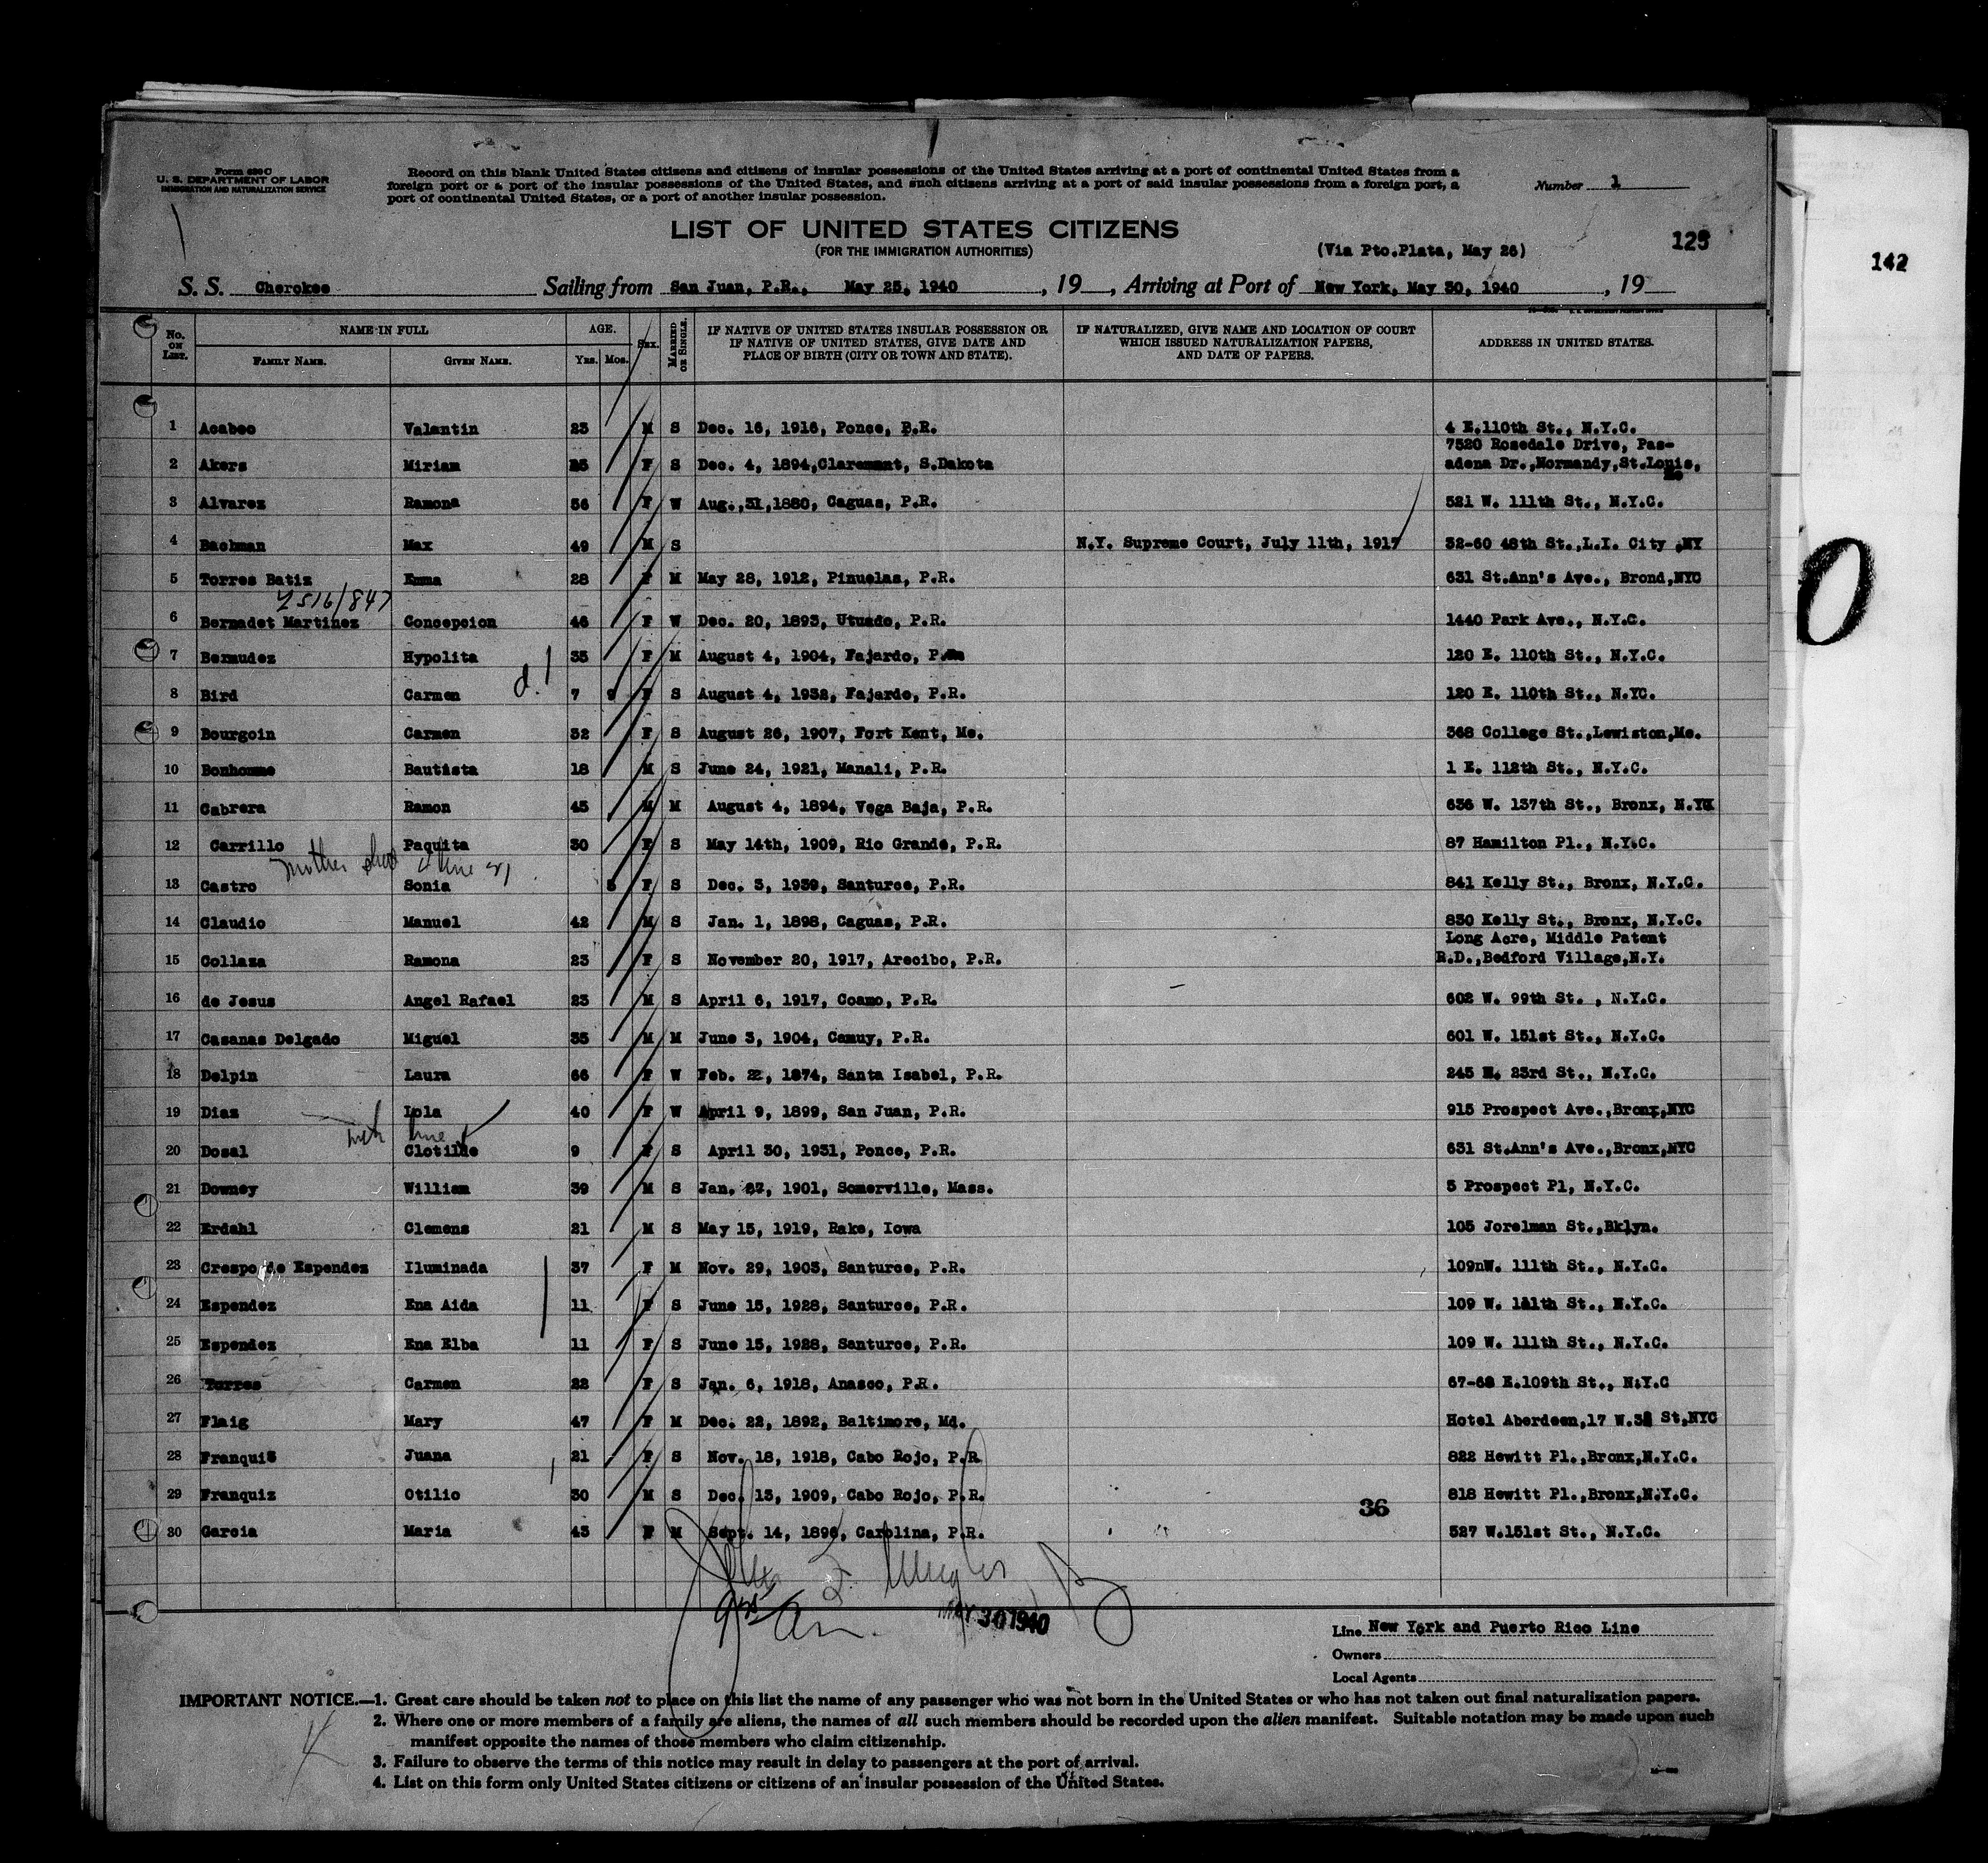 Form 630 C
U. S. DEPARTMENT OF LABOR
IMMIGRATION AND NATURALIZATION SERVICE
Record on this blank United States citizens and citizens of insular possessions of the United States arriving at a port of continental United States from a
foreign port or a port of the insular possessions of the United States, and such citizens arriving at a port of said insular possessions from a foreign port, a
port of continental United States, or a port of another insular possession.
Number 1
LIST OF UNITED STATES CITIZENS
(FOR THE IMMIGRATION AUTHORITIES)
(Via Pto.Plata, May 26)
123
142
S. S. Cherokee Sailing from San Juan, P.R., May 25, 1940, 19 , Arriving at Port of New York, May 30, 1940, 19
No. ON LIST. NAME IN FULL AGE. SEX. MARRIED OR SINGLE. IF NATIVE OF UNITED STATES INSULAR POSSESSION OR IF NATIVE OF UNITED STATES, GIVE DATE AND PLACE OF BIRTH (CITY OR TOWN AND STATE). IF NATURALIZED, GIVE NAME AND LOCATION OF COURT WHICH ISSUED NATURALIZATION PAPERS, AND DATE OF PAPERS. ADDRESS IN UNITED STATES.
FAMILY NAME. GIVEN NAME. YRS. MOS.
1 Acabeo Valantin 23 M S Dec. 16, 1916, Ponce, P.R. 4 E.110th St., N.Y.C.
7520 Rosedale Drive, Pas-
2 Akers Miriam F S Dec. 4, 1894,Claremont, S.Dakota adena Dr.,Normandy,St.Louis,
Mo
3 Alvarez Ramona 56 F W Aug.,31,1880, Caguas, P.R. 521 W. 111th St., N.Y.C.
4 Bachman Max 49 M S N.Y. Supreme Court, July 11th, 1917 32-60 48th St.,L.I. City ,NY
5 Torres Batiz Emma 28 F M May 28, 1912, Pinuelas, P.R. 631 St.Ann's Ave., Brond,NYC
2516/847
6 Bernadet Martinez Concepcion 46 F W Dec. 20, 1893, Utuado, P.R. 1440 Park Ave., N.Y.C.
7 Bermudez Hypolita 35 F M August 4, 1904, Fajardo, 120 E. 110th St., N.Y.C.
8 Bird Carmen 7 9 F S August 4, 1932, Fajardo, P.R. 120 E. 110th St., N.YC.
9 Bourgoin Carmen 32 F S August 26, 1907, Fort Kent, Me. 368 College St.,Lewiston,Me.
10 Bonhomme Bautista 18 M S June 24, 1921, Manali, P.R. 1 E. 112th St., N.Y.C.
11 Cabrera Ramon 45 M M August 4, 1894, Vega Baja, P.R. 636 W. 137th St., Bronx,
12 Carrillo Paquita 30 F S May 14th, 1909, Rio Grande, P.R. 87 Hamilton Pl., N.Y.C.
mother line
13 Castro Sonia 5 F S Dec. 3, 1939, Santurce, P.R. 841 Kelly St., Bronx, N.Y.C.
14 Claudio Manuel 42 M S Jan. 1, 1898, Caguas, P.R. 830 Kelly St., Bronx, N.Y.C.
Long Acre, Middle Patent
15 Collaza Ramona 23 F S November 20, 1917, Arecibo, P.R. R.D.,Bedford Village,N.Y.
16 de Jesus Angel Rafael 23 M S April 6, 1917, Coamo, P.R. 602 W. 99th St. , N.Y.C.
17 Casanas Delgado Miguel 35 M M June 3, 1904, Camuy, P.R. 601 W. 151st St., N.Y.C.
18 Delpin Laura 66 F W Feb. 22, 1874, Santa Isabel, P.R. 245 23rd St., N.Y.C.
19 Diaz Lola 40 F W April 9, 1899, San Juan, P.R. 915 Prospect Ave.,Bronx,NYC
with line
20 Dosal Clotilde 9 F S April 30, 1931, Ponce, P.R. 631 St.Ann's Ave.,Bronx,NYC
21 Downey William 39 M S Jan, 27, 1901, Somerville, Mass. 5 Prospect Pl, N.Y.C.
22 Erdahl Clemens 21 M S May 15, 1919, Rake, Iowa 105 Jorelman St.,Bklyn.
23 Crespo de Espendez Iluminada 37 F M Nov. 29, 1903, Santurce, P.R. 109nW. 111th St., N.Y.C.
24 Espendez Ena Aida 11 F S June 15, 1928, Santurce, P.R. 109 W. 111th St., N.Y.C.
25 Espendez Ena Elba 11 F S June 15, 1928, Santurce, P.R. 109 W. 111th St., N.Y.C.
26 Torres Carmen 22 F S Jan. 6, 1918, Anasco, P.R. 67-68 E.109th St., N.Y.C
27 Flaig Mary 47 F M Dec. 22, 1892, Baltimore, Md. Hotel Aberdeen,17 St,NYC
28 Franquiz Juana 21 F S Nov. 18, 1918, Cabo Rojo, P.R 822 Hewitt Pl.,Bronx,N.Y.C.
29 Franquiz Otilio 30 M S Dec. 13, 1909, Cabo Rojo, P.R. 818 Hewitt Pl.,Bronx,N.Y.C.
36
30 Garcia Maria 43 F M Sept. 14, 1896, Carolina, P.R. 527 W.151st St., N.Y.C.
MAY 30 1940
Line New York and Puerto Rico Line
Owners
Local Agents
IMPORTANT NOTICE.—1. Great care should be taken not to place on this list the name of any passenger who was not born in the United States or who has not taken out final naturalization papers.
2. Where one or more members of a family are aliens, the names of all such members should be recorded upon the alien manifest. Suitable notation may be made upon such
manifest opposite the names of those members who claim citizenship.
3. Failure to observe the terms of this notice may result in delay to passengers at the port of arrival.
4. List on this form only United States citizens or citizens of an insular possession of the United States.